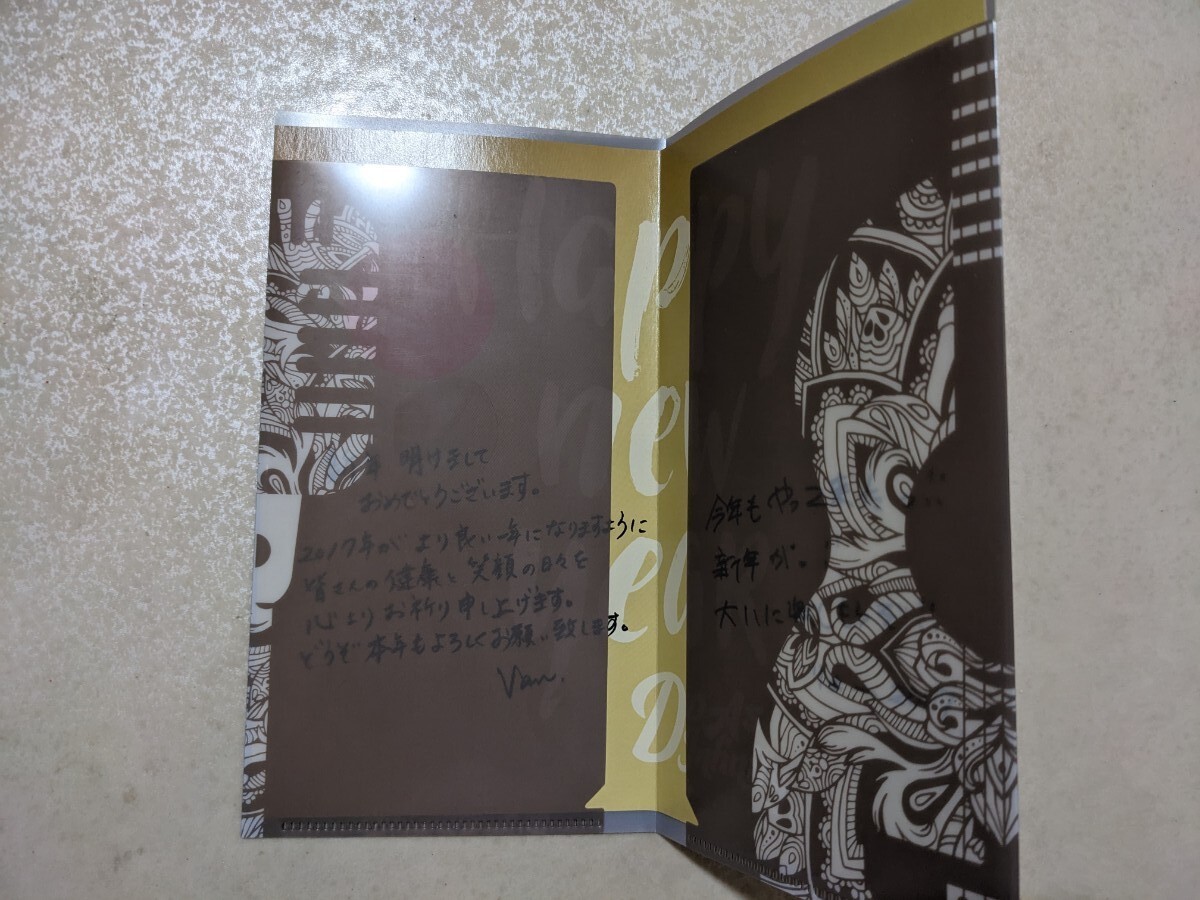 Happy
new
year
明けまして
おめでとうございます。
2017年が より良い一年になりますように
皆さんの健康と笑顔の日々を
心よりお祈り申し上げます。
どうぞ本年もよろしくお願い致します。
Van.
今年もやって
新年が。
大いに